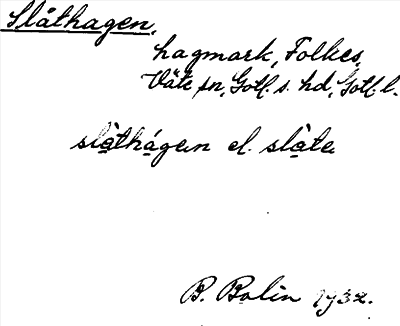 Slåthagen.
hagmark, Folkes,
Väte sn, Gotl. s. hd, Gotl. l.
slåthágen el. slåte
B. Bolin 1932.